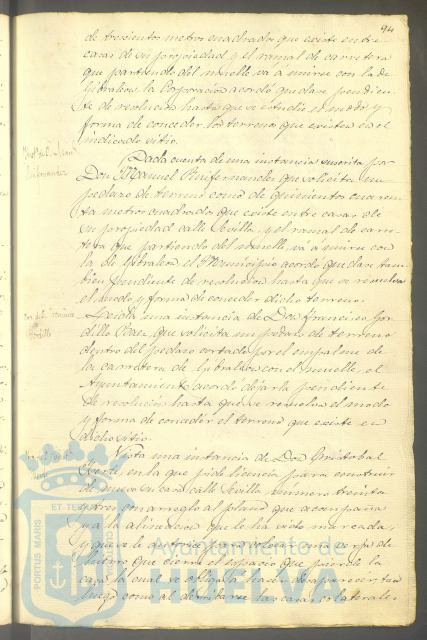 94
de trescientos metros cuadrados que existe entre
casas de su propiedad y el ramal de carretera
que partiendo del muelle va a unirse con la de
Gibraleon la Corporacion acordó quedase pendien-
te de resolucion hasta que se estudie el modo y
forma de conceder los terrenos que existen en el
indicado sitio.
Dada cuenta de una instancia suscrita por
Don Manuel que solicita un
pedazo de terreno como de quinientos cuaren-
ta metros cuadrados que existe entre casas de
su propiedad calle Sevilla, y el ramal de carre-
tera que partiendo del muelle, va á unirse con
la de Gibraleon el Municipio acordó quedase tam-
bien pendiente de resolucion hasta que se resuelva
el modo y forma de conceder dicho terreno.
Leida una instancia de Don Francisco Gor-
dillo que solicita un pedazo de terreno
dentro del pedazo cortado por el empalme de
la carretera de Gibraleon con el muelle, el
Ayuntamiento acordó dejarla pendiente
de resolucion hasta que se resuelva el modo
y forma de conceder el terreno que existe en
dicho sitio.
Vista una instancia de Don Cristobal
en la que pide licencia para construir
de nuevo su casa calle Sevilla numero treinta
con arreglo al plano que acompaña
y a la alineacion que le ha sido marcada,
y que se le autorice para colocar una verja de
hierro que cierre el espacio que pierde la
casa la cual se obliga á hacer desaparecer tan
luego como al derribarse las casas colaterales
PORTUS MARIS
ET TERRAE
CUSTODIA
Ayuntamiento de
HUELVA